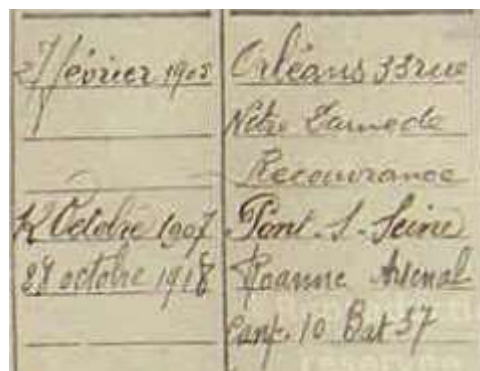 27 février 1908 Orléans 33 rue
Notre Dame de
Recouvrance
12 Octobre 1907 Pont-S-Seine
29 octobre 1918 Roanne Arsenal
Canp. 10 Bat 37